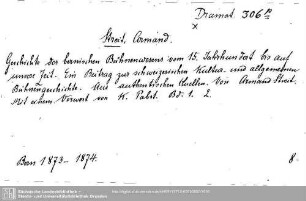 Dramat. 306 m
x
Streit, Armand.
Geschichte des bernischen Bühnenwesens vom 15. Jahrhundert bis auf
unsere Zeit. Ein Beitrag zur schweizerischen Kultur- und allgemeinen
Bühnengeschichte. Aus authentischen Quellen. Von Armand Streit.
Mit einem Vorwort von K. Pabst. Bd. 1. 2.
Bern 1873–1874. 8.
Sächsische Landesbibliothek –
Staats- und Universitätsbibliothek Dresden